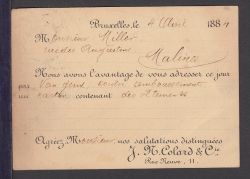 Bruxelles, le 4 Avril 1884
Monsieur Miller
rue des Augustins
Malines
Nous avons l'avantage de vous adresser ce jour
par Van Gend
un carton contenant des vêtements
Agréez, Monsieur, nos salutations distinguées
J. N. Colard & Cie
Rue Neuve, 11.